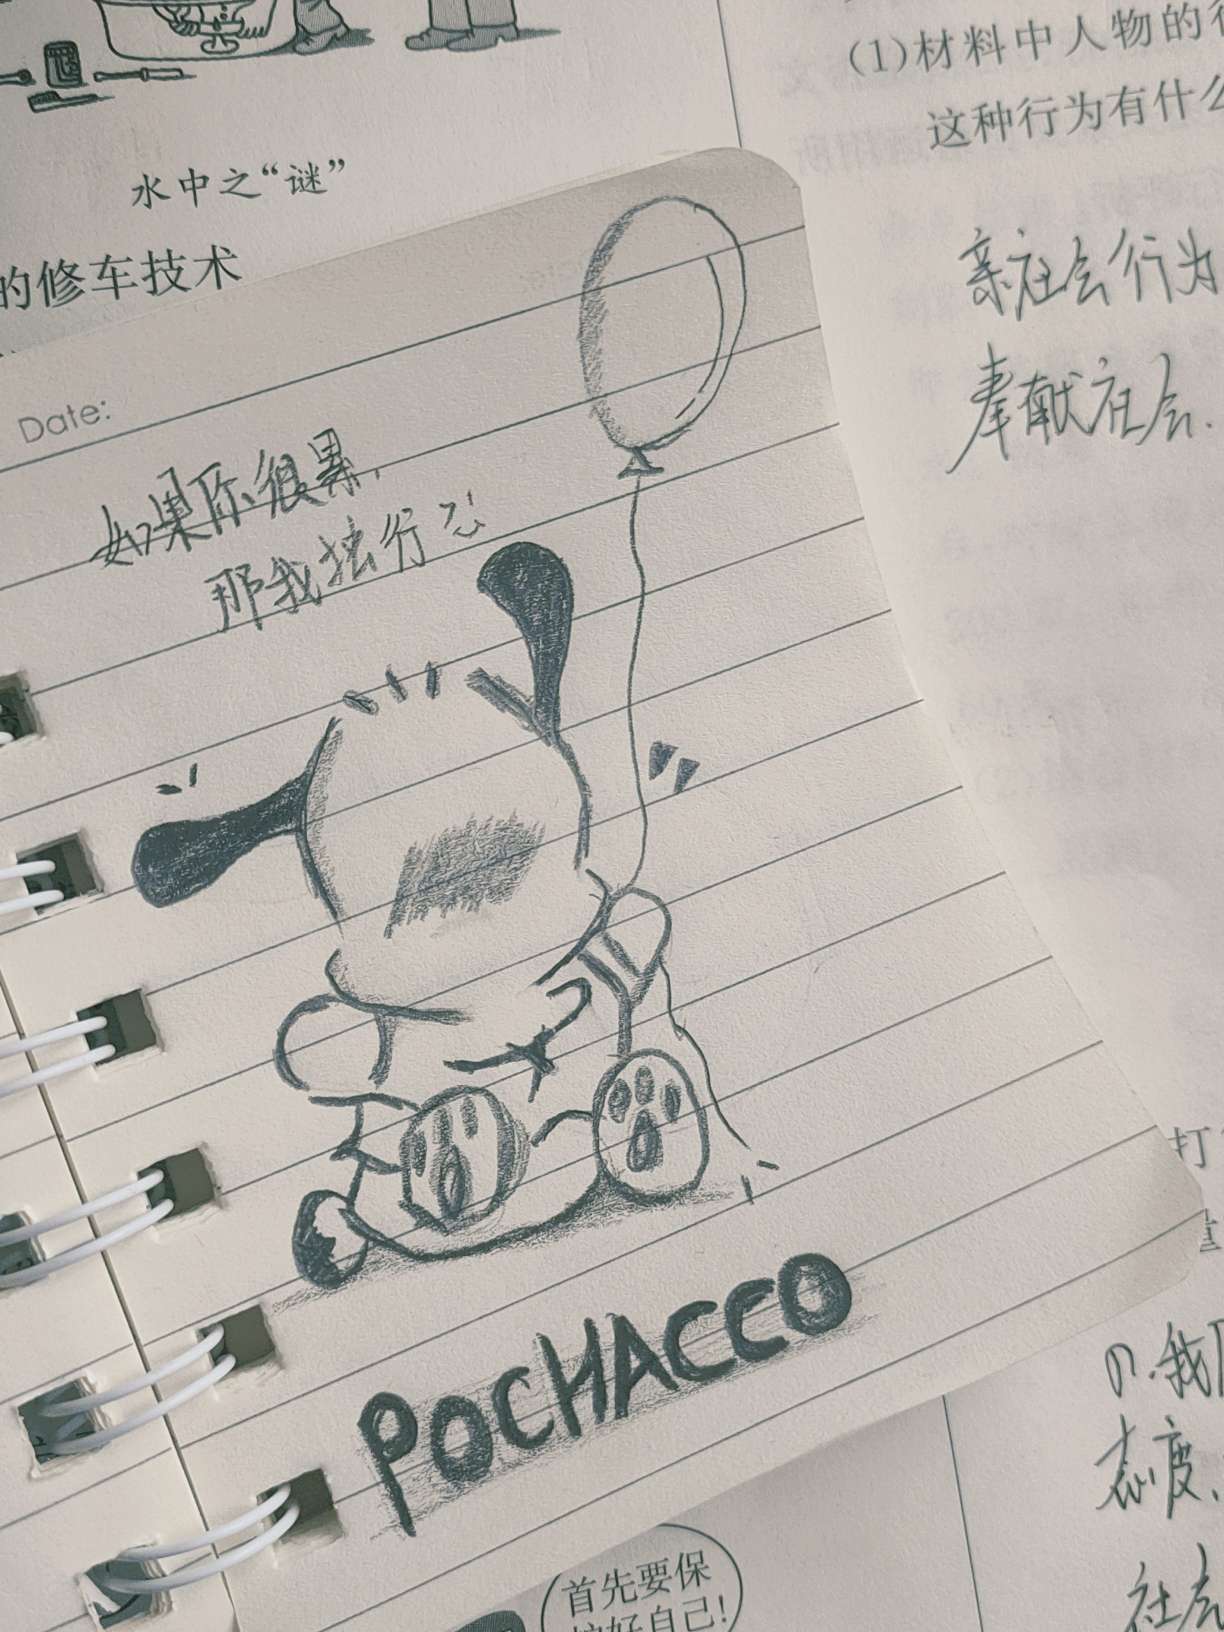 水中之“谜”
的修车技术
(1)材料中人物的
这种行为有什么
亲社会行为
奉献社会.
Date:
如果你很累,
那我独行
POCHACCO
打
我
态度、
社会
首先要保
护好自己!